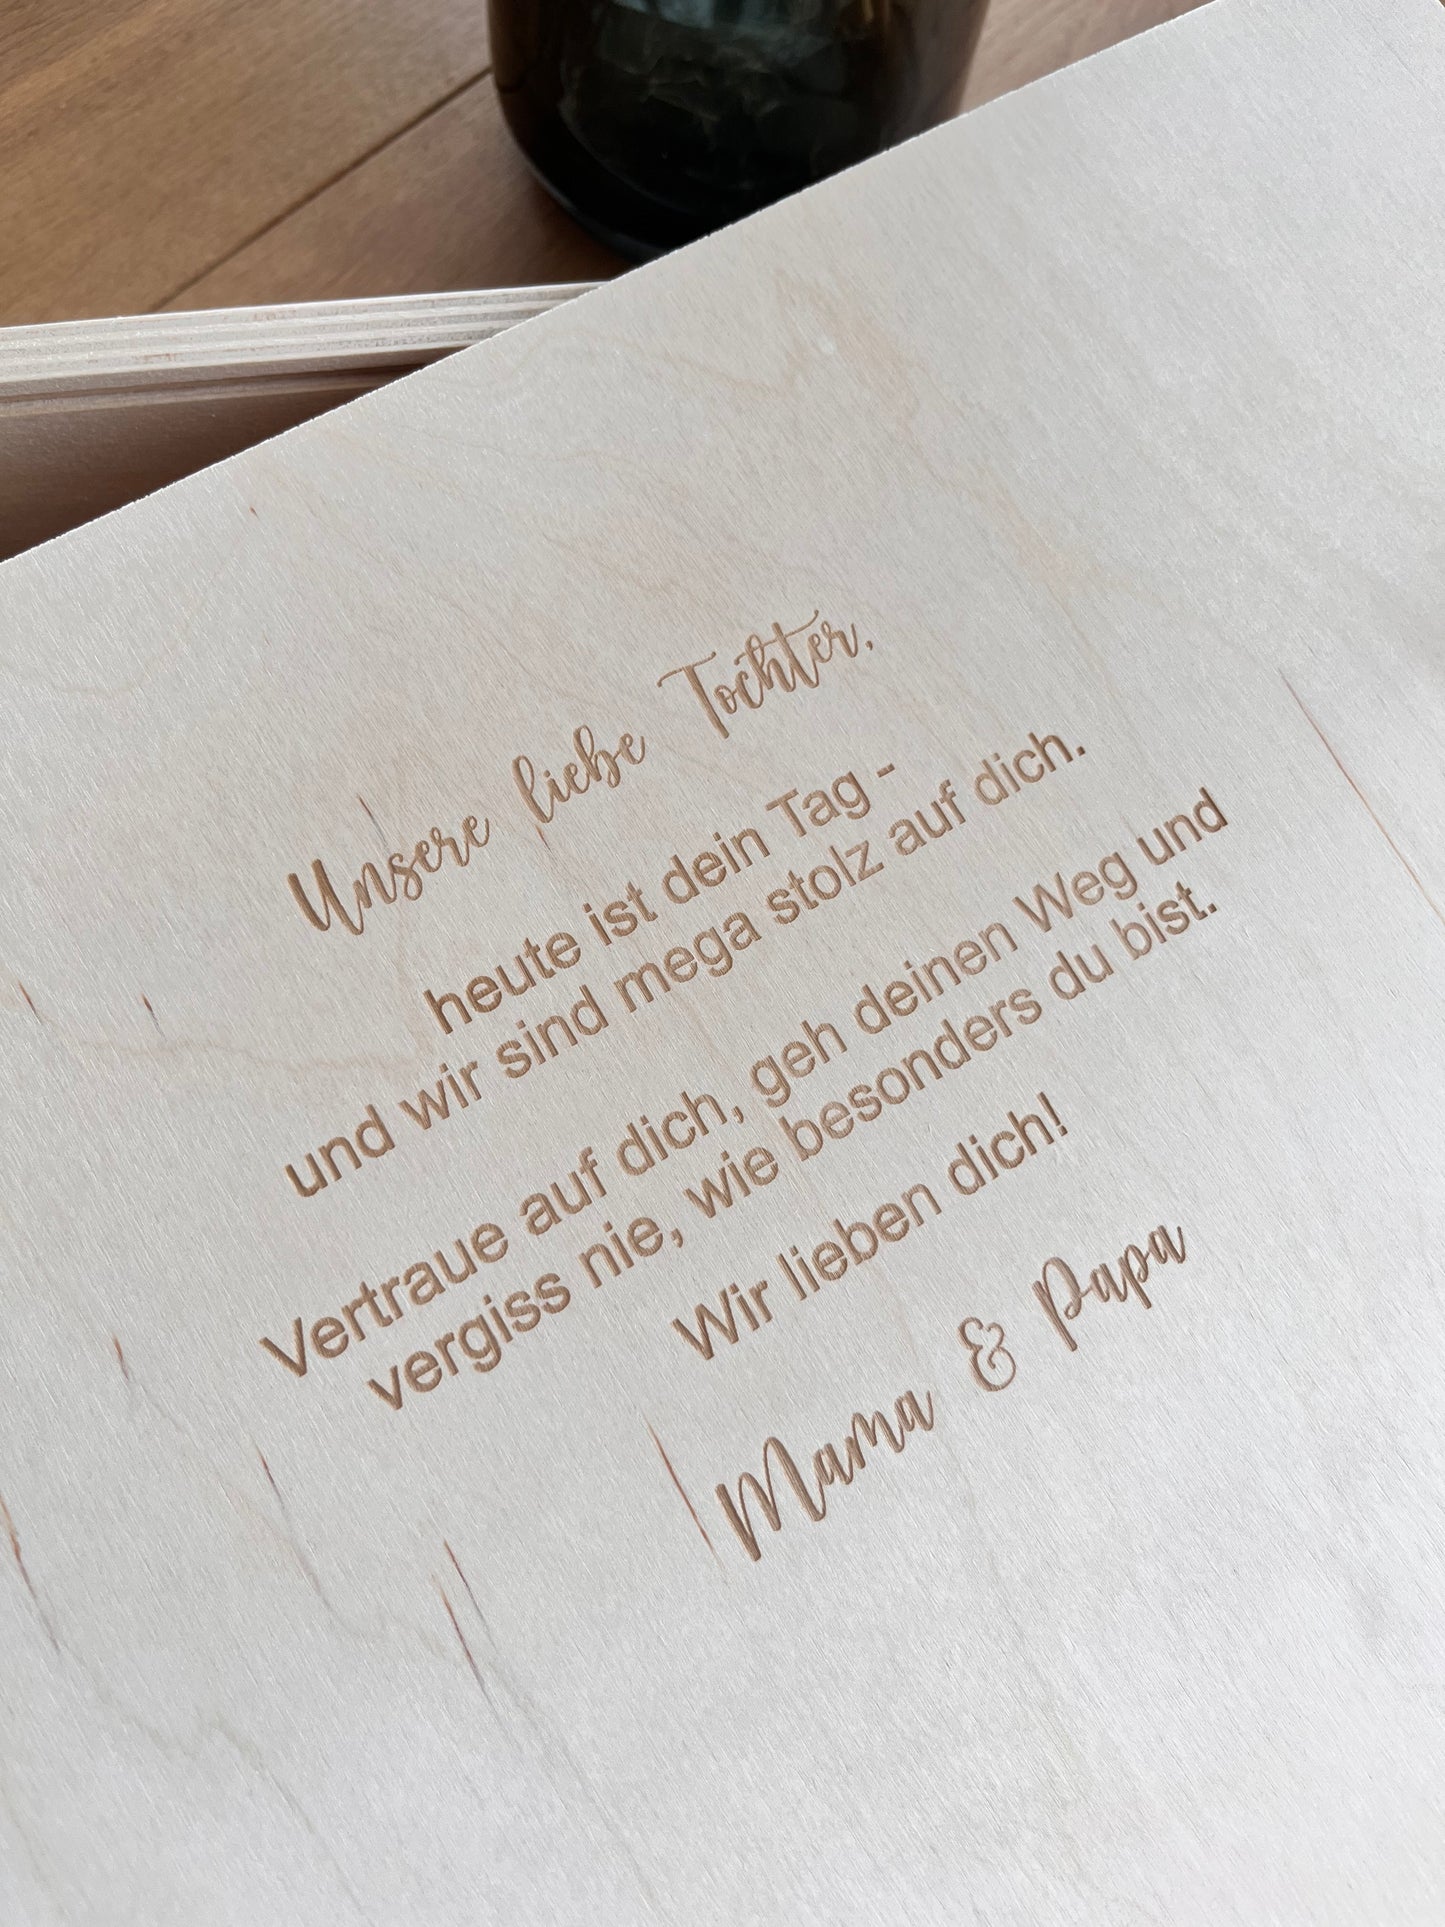 Unsere liebe Tochter,
heute ist dein Tag -
und wir sind mega stolz auf dich.
Vertraue auf dich, geh deinen Weg und
vergiss nie, wie besonders du bist.
Wir lieben dich!
Mama & Papa